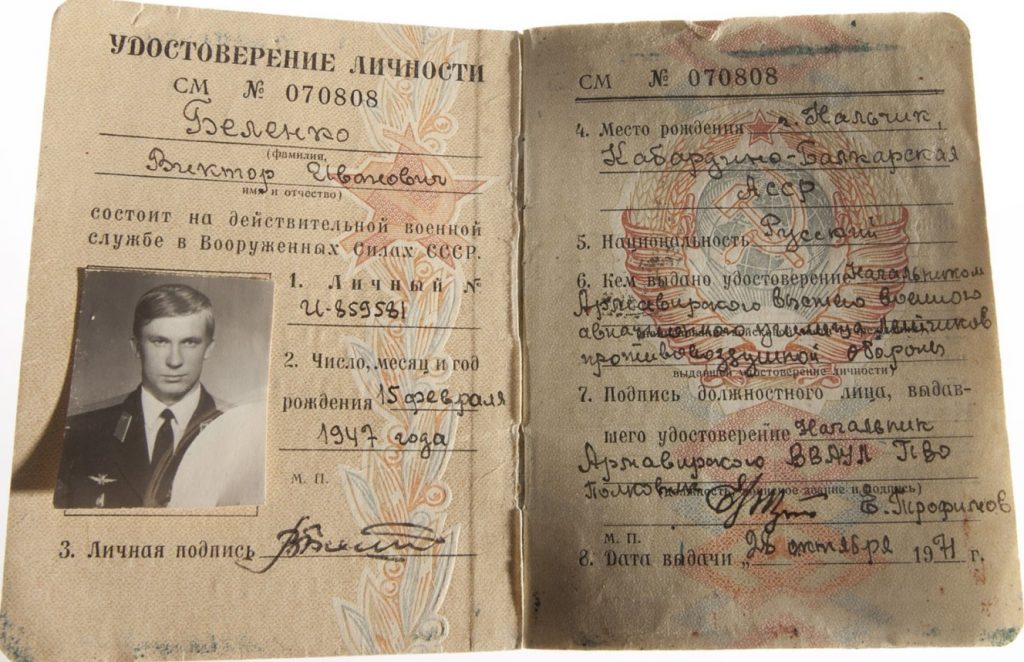 УДОСТОВЕРЕНИЕ ЛИЧНОСТИ
СМ № 070808
Беленко
(фамилия,
Виктор Иванович
имя и отчество)
состоит на действительной военной
службе в Вооруженных Силах СССР.
1. Личный №
И-859581
2. Число, месяц и год
рождения 15 февраля
1947 года
М. П.
3. Личная подпись
СМ № 070808
4. Место рождения г. Нальчик,
Кабардино-Балкарская
АССР
5. Национальность Русский
6. Кем выдано удостоверение Начальником
Армавирского высшего военного
авиационного училища лётчиков
противовоздушной обороны
выдавшей удостоверение личности)
7. Подпись должностного лица, выдав-
шего удостоверение Начальник
Армавирского ВВАУЛ ПВО
Полковник воинское звание и подпись)
Е. Трофимов
М. П.
8. Дата выдачи „28 октября 1971 г.